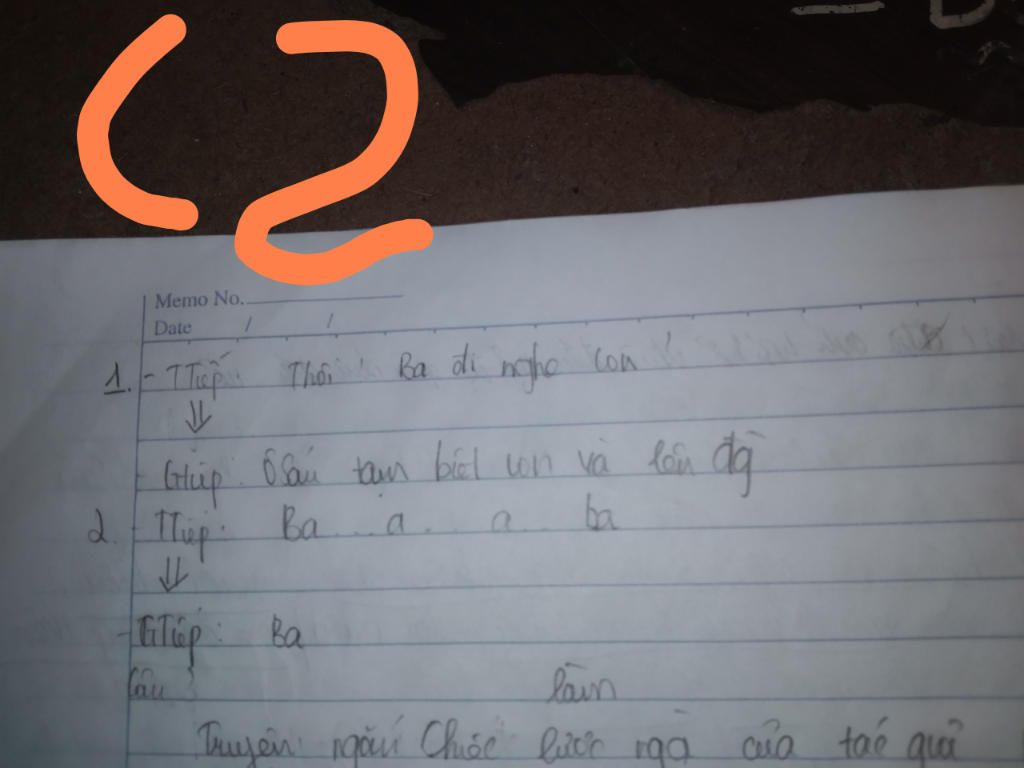 C2
Memo No.
Date / /
1. - TTiếp: Thôi! Ba đi nghe con!
⇓
- GTiếp: ÔSáu tạm biệt con và lên đg
2. - TTiếp: Ba... a... a... ba
⇓
- GTiếp: Ba
Câu 3 làm
Truyện ngắn Chiếc lược ngà của tác giả